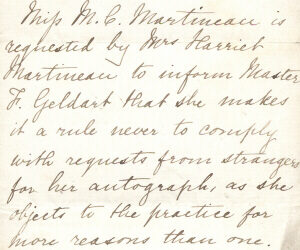 Miss M. C. Martineau is
requested by Mrs Harriet
Martineau to inform Master
F. Geldart that she makes
it a rule never to comply
with requests from strangers
for her autograph, as she
objects to the practice for
more reasons than one.